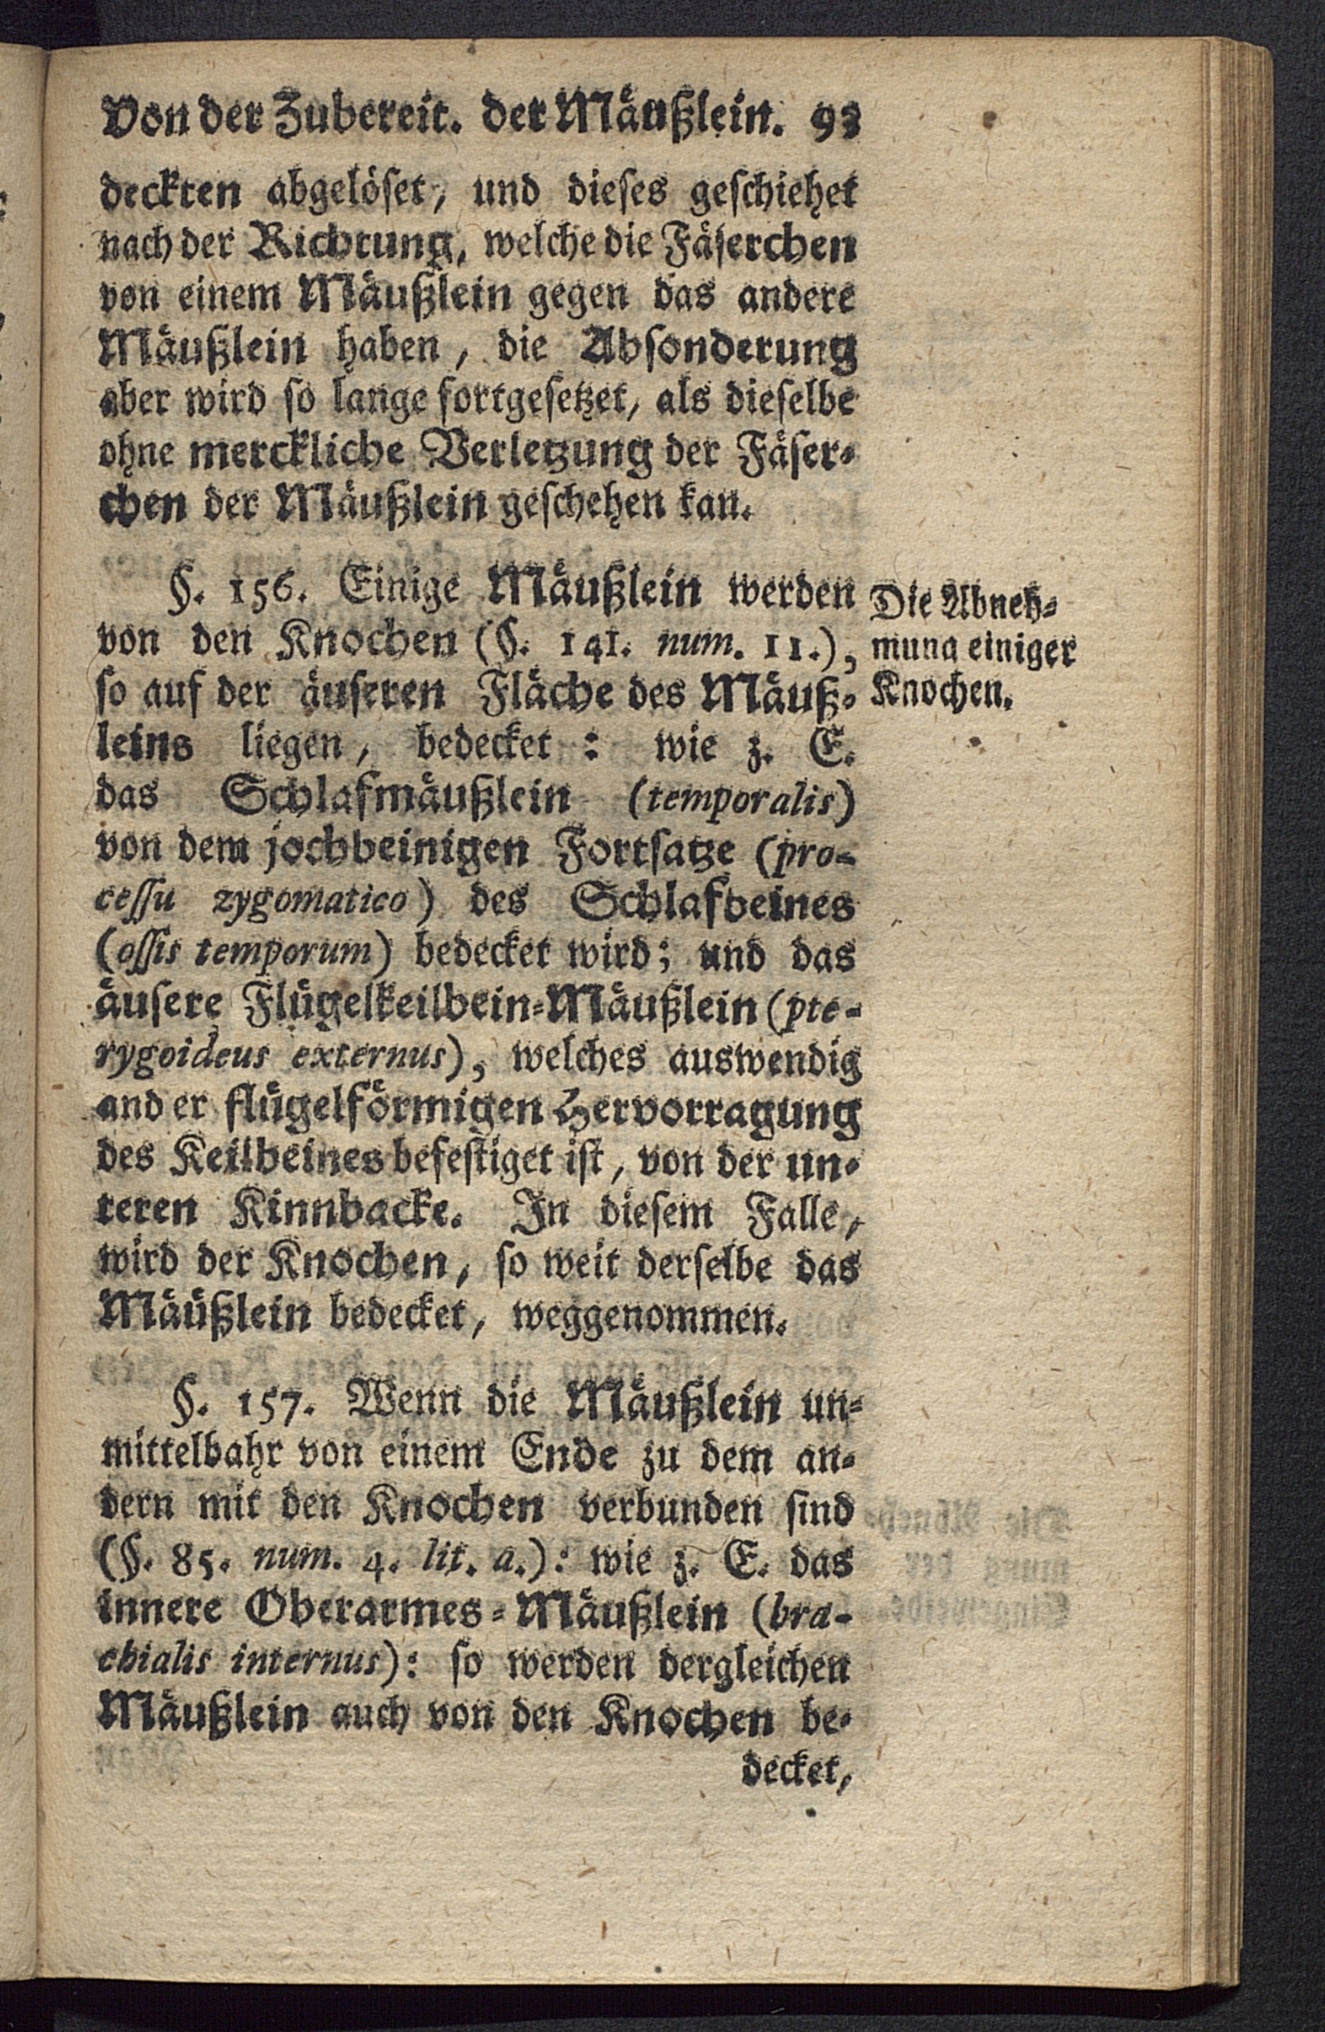 Von der Zubereit. der Mäußlein. 93
deckten abgelöset, und dieses geschiehet
nach der Richtung, welche die Fäserchen
von einem Mäußlein gegen das andere
Mäußlein haben, die Absonderung
aber wird so lange fortgesetzet, als dieselbe
ohne merckliche Verletzung der Fäser-
chen der Mäußlein geschehen kan.
§. 156. Einige Mäußlein werden
von den Knochen (§. 141. num. 11.),
so auf der äuseren Fläche des Mäuß-
leins liegen, bedecket: wie z. E.
das Schlafmäußlein (temporalis)
von dem jochbeinigen Fortsatze (pro-
cessu zygomatico) des Schlafbeines
(ossis temporum) bedecket wird; und das
äusere Flügelkeilbein-Mäußlein (pte-
rygoideus externus), welches auswendig
and er flügelförmigen Hervorragung
des Keilbeines befestiget ist, von der un-
teren Kinnbacke. In diesem Falle,
wird der Knochen, so weit derselbe das
Mäußlein bedecket, weggenommen.
Die Abneh-
mung einiger
Knochen.
§. 157. Wenn die Mäußlein un-
mittelbahr von einem Ende zu dem an-
dern mit den Knochen verbunden sind
(§. 85. num. 4. lit. a.): wie z. E. das
innere Oberarmes-Mäußlein (bra-
chialis internus): so werden dergleichen
Mäußlein auch von den Knochen be-
decket,